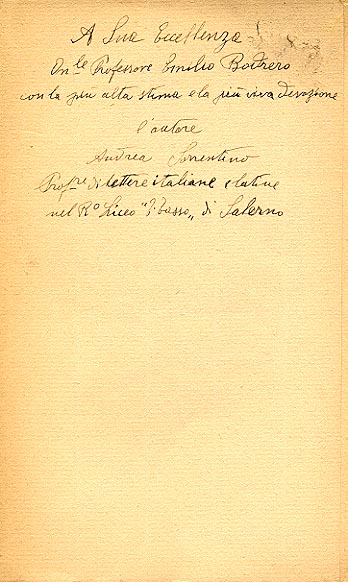 A Sua Eccellenza
On.le Professore Emilio Bodrero
con la più alta stima e la più viva devozione
l'autore
Andrea Sorrentino
Prof.re di lettere italiane e latine
nel R.o Liceo "T. Tasso" di Salerno